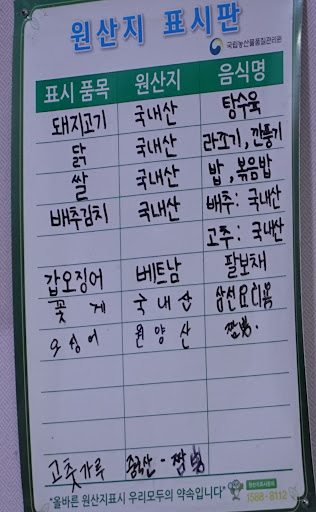 원산지 표시판
국립농산물품질관리원
표시 품목 원산지 음식명
돼지고기 국내산 탕수육
닭 국내산 라조기, 깐풍기
쌀 국내산 밥, 볶음밥
배추김치 국내산 배추: 국내산
고추: 국내산
갑오징어 베트남 팔보채
꽃게 국내산 삼선요리용
오싱어 원양산 짬뽕.
고춧가루 중국산 - 짬뽕
"올바른 원산지표시 우리모두의 약속입니다" 원산지표시문의 1588-8112